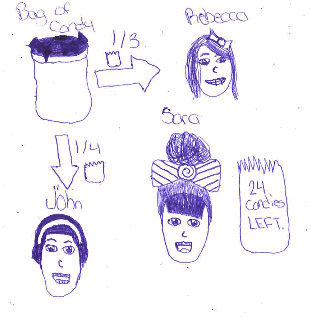 Bag of
Candy
1/3
Rebecca
Sara
1/4
John
24
candies
LEFT.